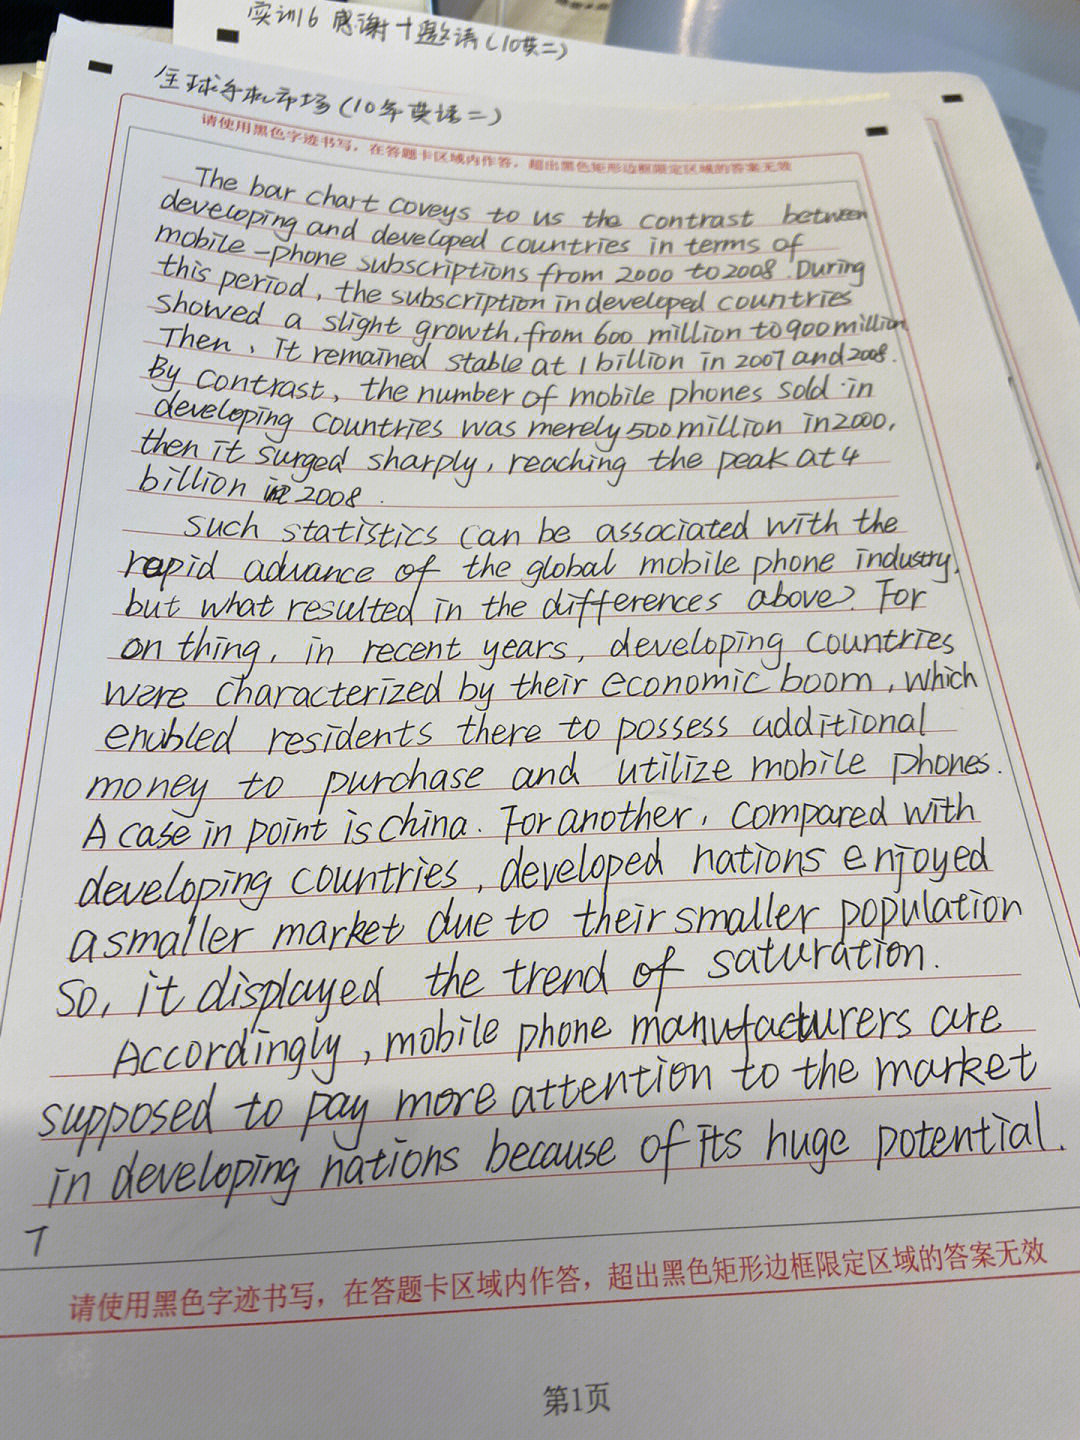 实训16 感谢+邀请(10英二)
全球手机市场(10年英语二)
请使用黑色字迹书写，在答题卡区域内作答，超出黑色矩形边框限定区域的答案无效
The bar chart coveys to us the contrast between
developing and developed countries in terms of
mobile-phone subscriptions from 2000 to 2008. During
this period, the subscription in developed countries
showed a slight growth, from 600 million to 900 million.
Then, it remained stable at 1 billion in 2007 and 2008.
By contrast, the number of mobile phones sold in
developing countries was merely 500 million in 2000,
then it surged sharply, reaching the peak at 4
billion in 2008.
Such statistics can be associated with the
rapid advance of the global mobile phone industry,
but what resulted in the differences above? For
on thing, in recent years, developing countries
were characterized by their economic boom, which
enabled residents there to possess additional
money to purchase and utilize mobile phones.
A case in point is china. For another, compared with
developing countries, developed nations enjoyed
a smaller market due to their smaller population
So, it displayed the trend of saturation.
Accordingly, mobile phone manufacturers are
supposed to pay more attention to the market
in developing nations because of its huge potential.
7
请使用黑色字迹书写，在答题卡区域内作答，超出黑色矩形边框限定区域的答案无效
第1页